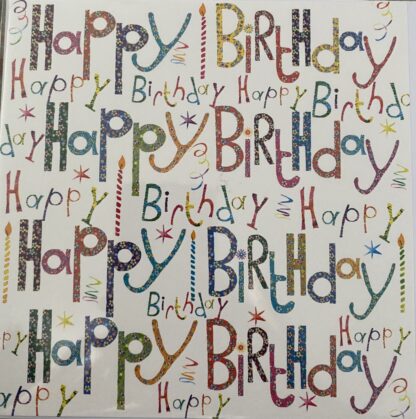 Happy Birthday
Happy Birthday Happy Birthday
day Happy Birthday
Happy Birthday Happy
Happy Birthday
Birthday
Happy Happy Birthday Happy